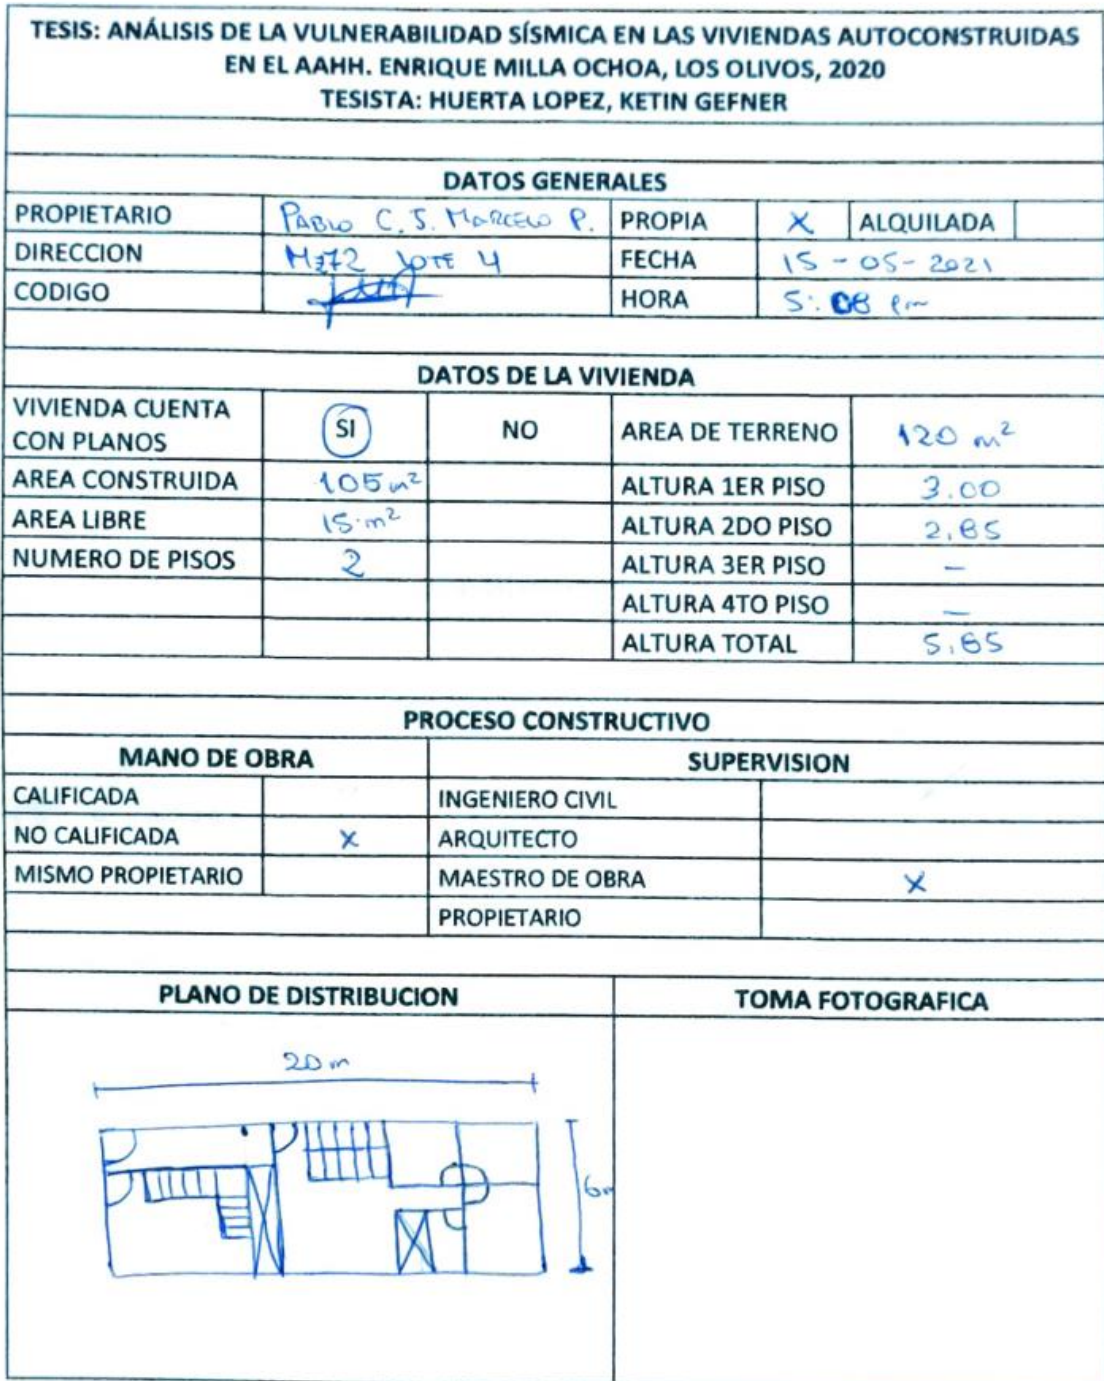 TESIS: ANÁLISIS DE LA VULNERABILIDAD SÍSMICA EN LAS VIVIENDAS AUTOCONSTRUIDAS
EN EL AAHH. ENRIQUE MILLA OCHOA, LOS OLIVOS, 2020
TESISTA: HUERTA LOPEZ, KETIN GEFNER
DATOS GENERALES
PROPIETARIO PABLO C. J. MARCELO P. PROPIA X ALQUILADA
DIRECCION Mz72 LOTE 4 FECHA 15-05-2021
CODIGO HORA 5:08 pm
DATOS DE LA VIVIENDA
VIVIENDA CUENTA
CON PLANOS SI NO AREA DE TERRENO 120 m²
AREA CONSTRUIDA 105 m² ALTURA 1ER PISO 3.00
AREA LIBRE 15 m² ALTURA 2DO PISO 2.85
NUMERO DE PISOS 2 ALTURA 3ER PISO –
ALTURA 4TO PISO –
ALTURA TOTAL 5.85
PROCESO CONSTRUCTIVO
MANO DE OBRA SUPERVISION
CALIFICADA INGENIERO CIVIL
NO CALIFICADA X ARQUITECTO
MISMO PROPIETARIO MAESTRO DE OBRA X
PROPIETARIO
PLANO DE DISTRIBUCION TOMA FOTOGRAFICA
20 m
6m